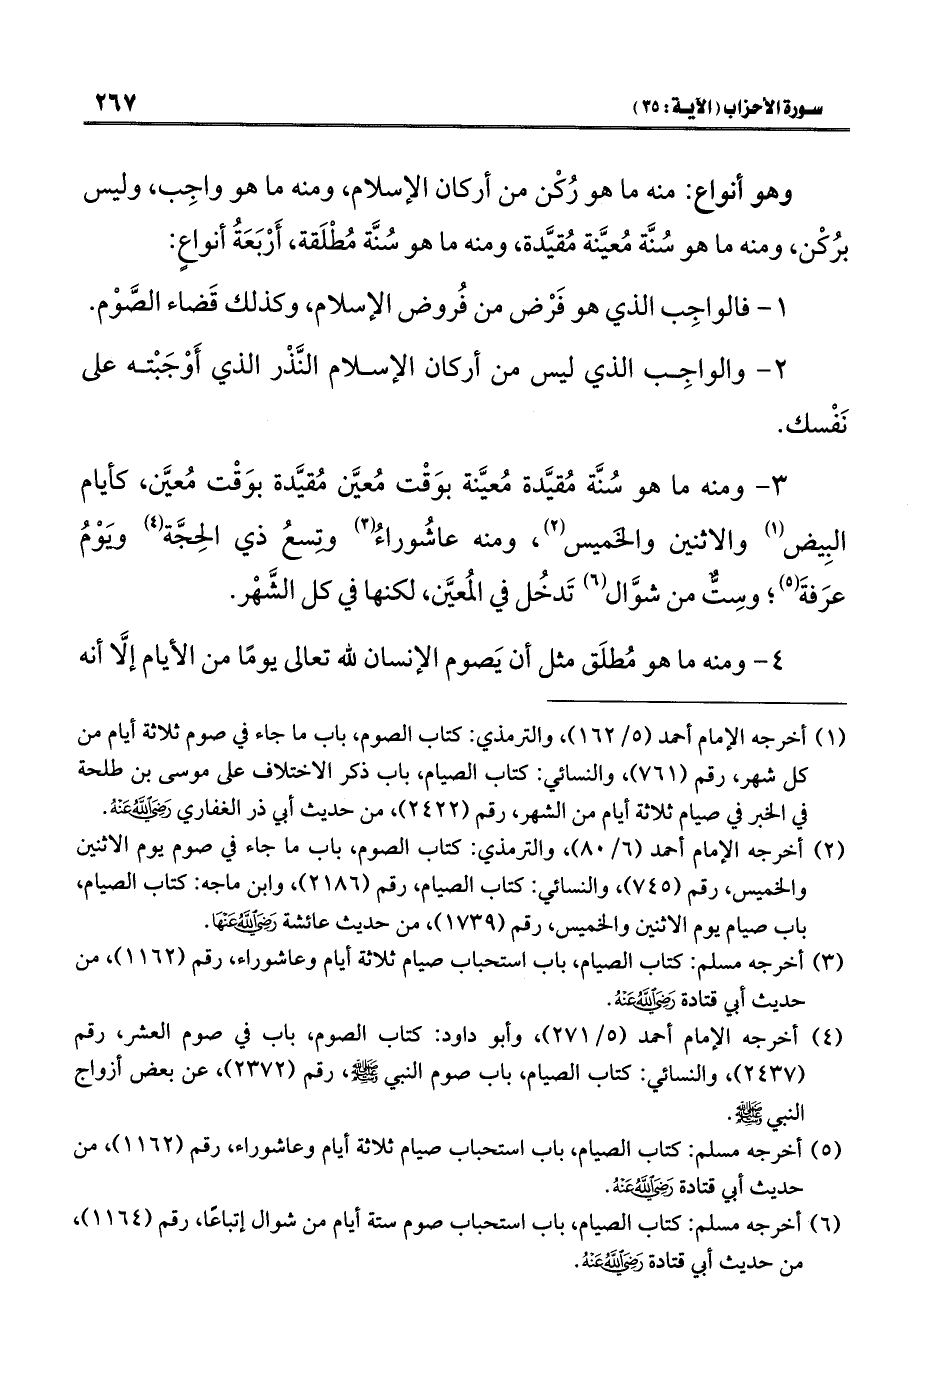 سورة الأحزاب (الآية: ٣٥) ٢٦٧
وهو أنواع: منه ما هو رُكْن من أركان الإسلام، ومنه ما هو واجِب، وليس
برُكْن، ومنه ما هو سُنَّة مُعيَّنة مُقيَّدة، ومنه ما هو سُنَّة مُطْلَقة، أَرْبَعَةُ أنواعٍ:
١- فالواجِب الذي هو فَرْض من فُروض الإسلام، وكذلك قَضاء الصَّوْم.
٢- والواجِـب الذي ليس من أركان الإسـلام النَّذْر الذي أَوْجَبْتـه على
نَفْسك.
٣- ومنه ما هو سُنَّة مُقيَّدة مُعيَّنة بوَقْت مُعيَّن مُقيَّدة بوَقْت مُعيَّن، كأيام
البِيض(١) والاثنين والخميس(٢)، ومنه عاشُوراءُ(٣) وتِسعُ ذي الحِجَّة(٤) ويَوْمُ
عرَفةَ(٥)؛ وسِتٌّ من شوَّال(٦) تَدخُل في المُعيَّن، لكنها في كل الشَّهْر.
٤- ومنه ما هو مُطلَق مثل أن يَصوم الإنسان لله تعالى يومًا من الأيام إلَّا أنه
(١) أخرجه الإمام أحمد (٥/ ١٦٢)، والترمذي: كتاب الصوم، باب ما جاء في صوم ثلاثة أيام من
كل شهر، رقم (٧٦١)، والنسائي: كتاب الصيام، باب ذكر الاختلاف على موسى بن طلحة
في الخبر في صيام ثلاثة أيام من الشهر، رقم (٢٤٢٢)، من حديث أبي ذر الغفاري رَضِيَ اللَّهُ عَنْهُ.
(٢) أخرجه الإمام أحمد (٦/ ٨٠)، والترمذي: كتاب الصوم، باب ما جاء في صوم يوم الاثنين
والخميس، رقم (٧٤٥)، والنسائي: كتاب الصيام، رقم (٢١٨٦)، وابن ماجه: كتاب الصيام،
باب صيام يوم الاثنين والخميس، رقم (١٧٣٩)، من حديث عائشة رَضِيَ اللَّهُ عَنْهَا.
(٣) أخرجه مسلم: كتاب الصيام، باب استحباب صيام ثلاثة أيام وعاشوراء، رقم (١١٦٢)، من
حديث أبي قتادة رَضِيَ اللَّهُ عَنْهُ.
(٤) أخرجه الإمام أحمد (٥/ ٢٧١)، وأبو داود: كتاب الصوم، باب في صوم العشر، رقم
(٢٤٣٧)، والنسائي: كتاب الصيام، باب صوم النبي ﷺ، رقم (٢٣٧٢)، عن بعض أزواج
النبي ﷺ.
(٥) أخرجه مسلم: كتاب الصيام، باب استحباب صيام ثلاثة أيام وعاشوراء، رقم (١١٦٢)، من
حديث أبي قتادة رَضِيَ اللَّهُ عَنْهُ.
(٦) أخرجه مسلم: كتاب الصيام، باب استحباب صوم ستة أيام من شوال إتباعًا، رقم (١١٦٤)،
من حديث أبي قتادة رَضِيَ اللَّهُ عَنْهُ.